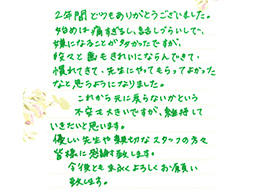 2年間とてもありがとうございました。
始めは痛すぎるし、話しづらいしで、
嫌になることが多かったですが、
段々と歯もきれいにならんできて、
慣れてきて、先生にやってもらってよかった
なと思うようになりました。
これから元に戻らないかという
不安も大きいですが、維持して
いきたいと思います。
優しい先生や親切なスタッフの方々
皆様に感謝致します。
今後とも末永くよろしくお願い
致します。